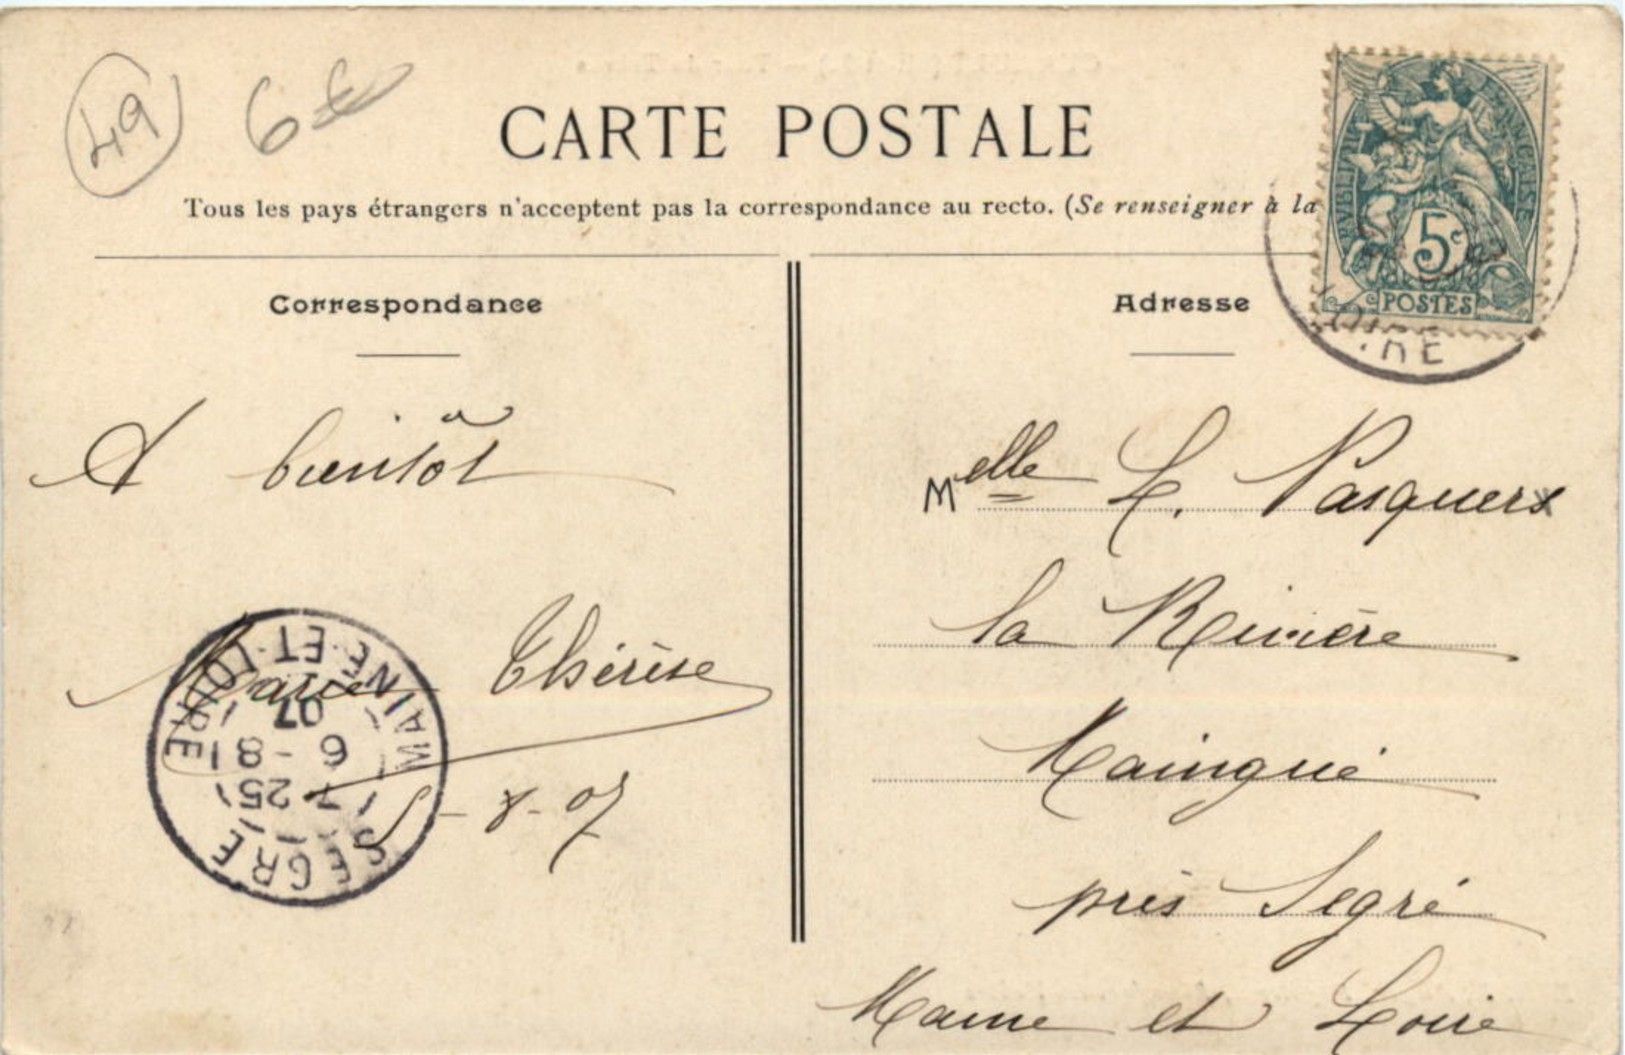 49
6€
CARTE POSTALE
Tous les pays étrangers n'acceptent pas la correspondance au recto. (Se renseigner à la
RÉPUBLIQUE FRANÇAISE
5c
POSTES
Correspondance
A bientôt
Marie Thérèse
5-8-07
SEGRÉ
7 25
6 - 8
07
MAINE-ET-LOIRE
Adresse
Melle L. Pasquer
la Rivière
Maingué
près Segré
Maine et Loire